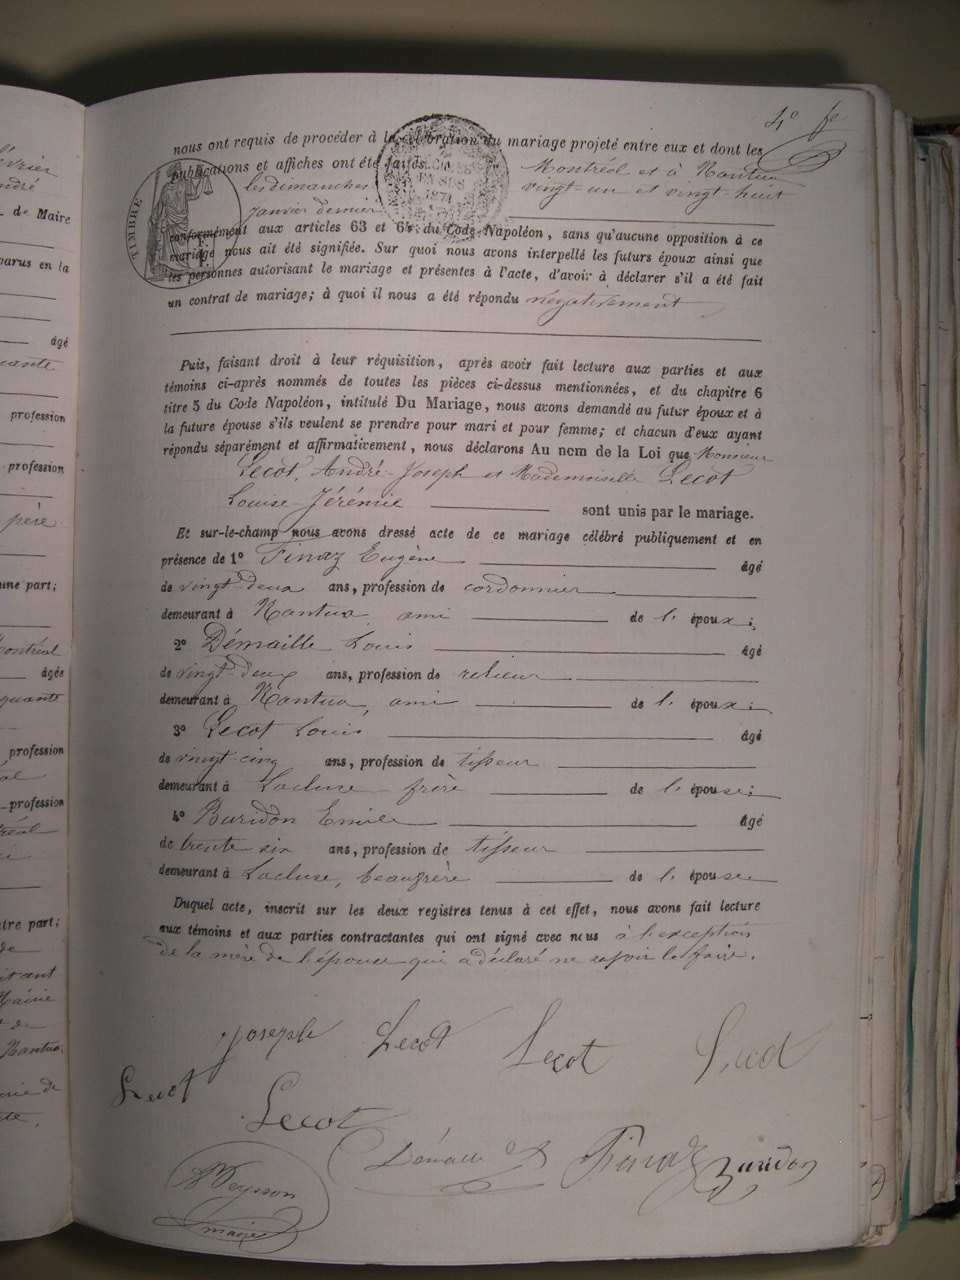 4º fe
nous ont requis de procéder à la célébration du mariage projeté entre eux et dont les
publications et affiches ont été faites à Montréal et à Nantua
les dimanches vingt-un et vingt-huit
janvier dernier
conformément aux articles 63 et 64 du Code Napoléon, sans qu'aucune opposition à ce
mariage nous ait été signifiée. Sur quoi nous avons interpellé les futurs époux ainsi que
les personnes autorisant le mariage et présentes à l'acte, d'avoir à déclarer s'il a été fait
un contrat de mariage; à quoi il nous a été répondu négativement
TIMBRE
1871
Puis, faisant droit à leur réquisition, après avoir fait lecture aux parties et aux
témoins ci-après nommés de toutes les pièces ci-dessus mentionnées, et du chapitre 6
titre 5 du Code Napoléon, intitulé Du Mariage, nous avons demandé au futur époux et à
la future épouse s'ils veulent se prendre pour mari et pour femme; et chacun d'eux ayant
répondu séparément et affirmativement, nous déclarons Au nom de la Loi que Monsieur
Lecot, André-Joseph et Mademoiselle Lecot
Louise Jérémie sont unis par le mariage.
Et sur-le-champ nous avons dressé acte de ce mariage célébré publiquement et en
présence de 1º Finaz Eugène âgé
de vingt-deux ans, profession de cordonnier
demeurant à Nantua, ami de l'époux;
2º Démaille Louis âgé
de vingt-deux ans, profession de relieur
demeurant à Nantua, ami de l'époux;
3º Lecot Louis âgé
de vingt-cinq ans, profession de tisseur
demeurant à Lacluse frère de l'épouse;
4º Burdon Emile âgé
de trente six ans, profession de tisseur
demeurant à Lacluse, beaufrère de l'épouse
Duquel acte, inscrit sur les deux registres tenus à cet effet, nous avons fait lecture
aux témoins et aux parties contractantes qui ont signé avec nous à l'exception
de la mère de l'épouse qui a déclaré ne savoir le faire.
Joseph Lecot Lecot Lecot
Lecot
Lecot
Démaille Finaz Burdon
maire
vrier
ndré
de Maire
parus en la
âgé
profession
profession
père
une part;
ontréal
âgée
quante
profession
profession
tréal
tre part;
de
Mairie
de
Nantua